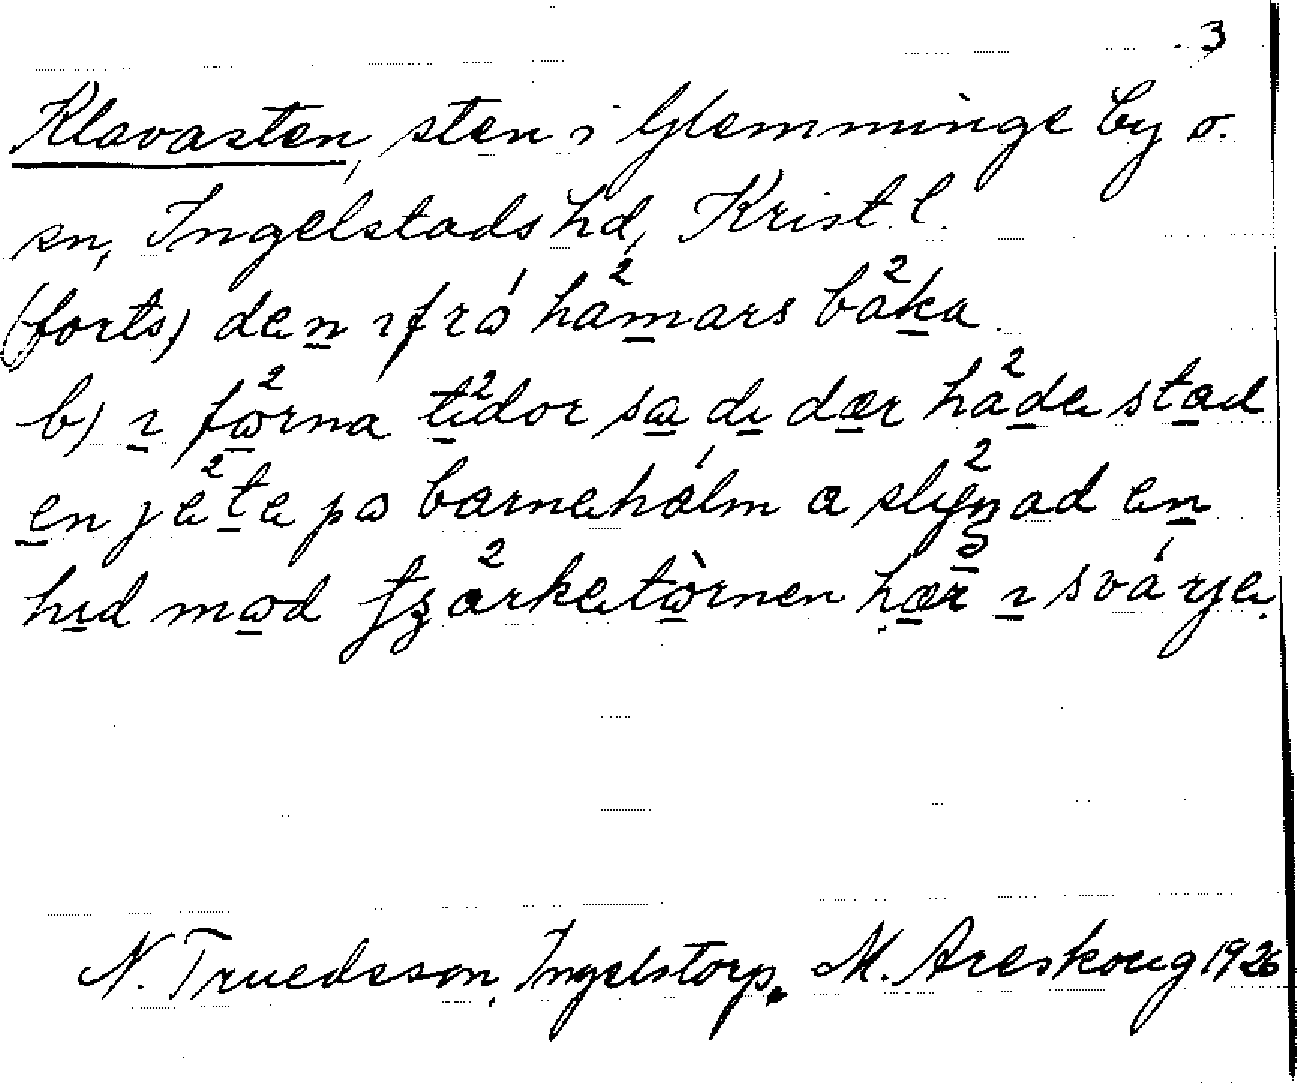 3
Klavasten, sten i Glemminge by o.
sn, Ingelstads hd, Krist. l.
(forts) den ifrå hamars baka
b) i forna tidor sa di dær hade stad
en jete på barneholm a slyŋad en
hid mod tzarketornen hær i svárje.
N. Truedsson, Ingelstorp. M. Areskoug 1926